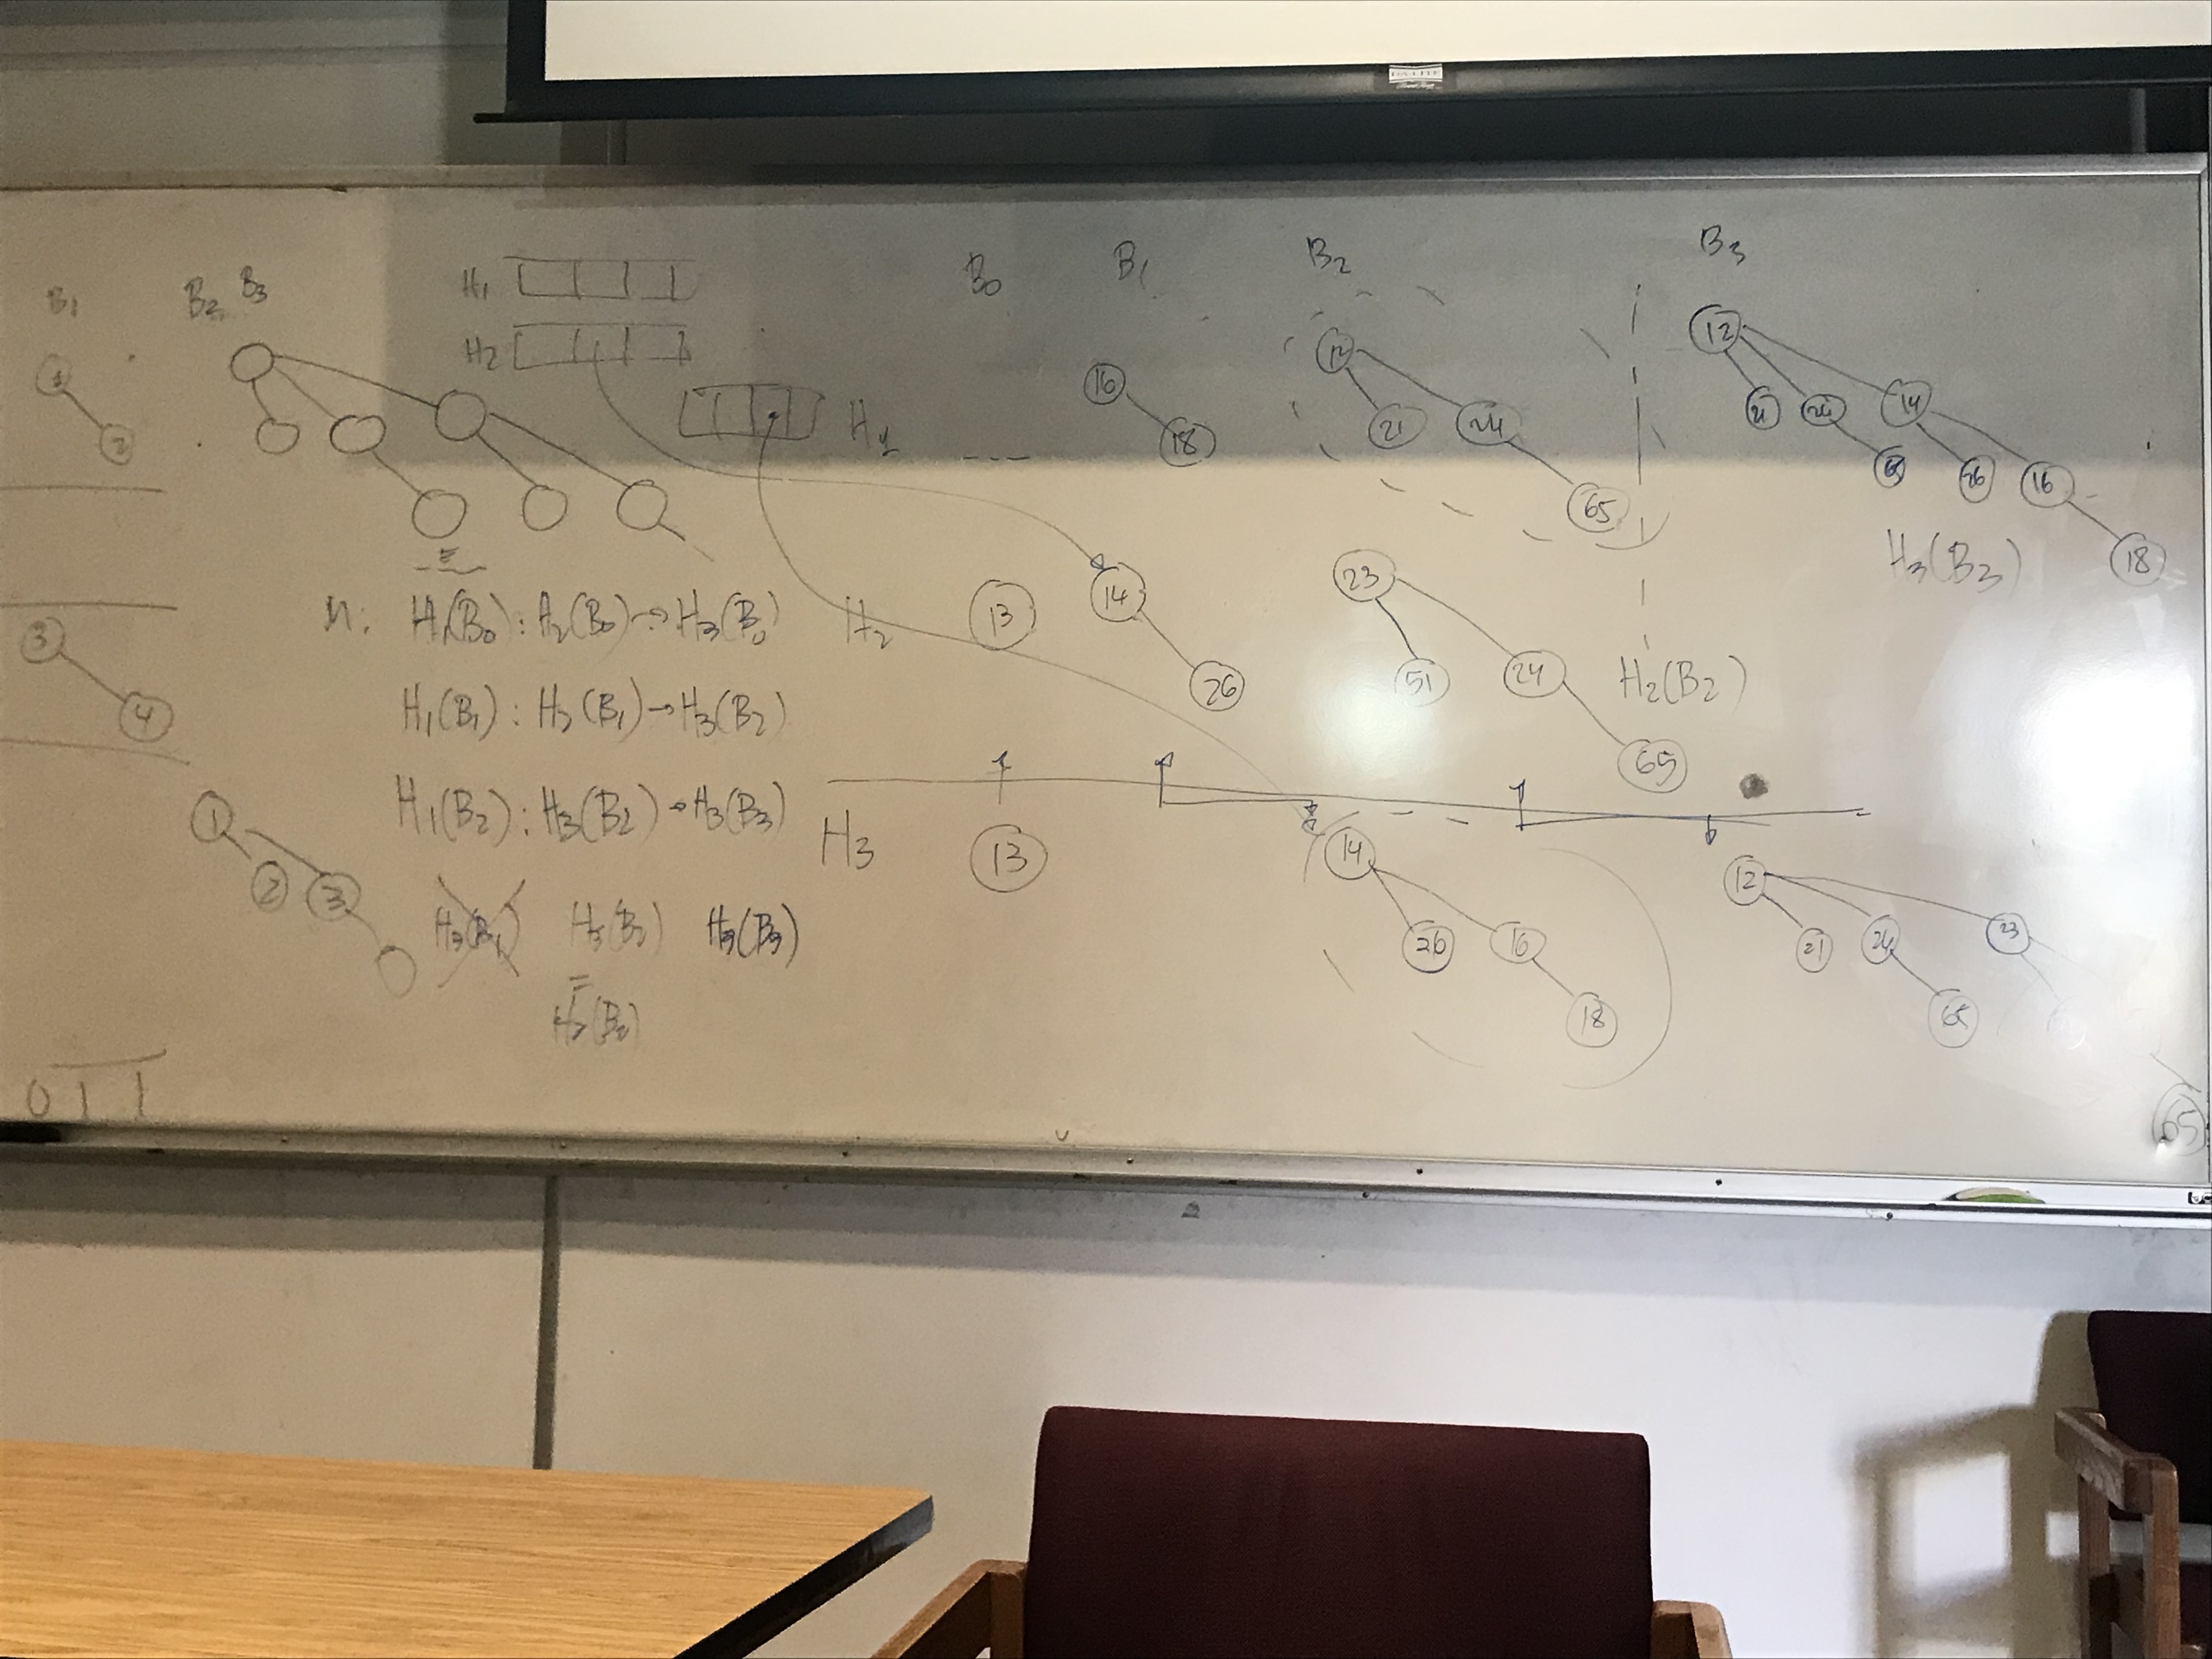 B1 B2 B3
1
2
3
4
1
2 3
0 1 1
H1
H2
H1
B0 B1 B2 B3
16
18
12
21 24
65
12
21 24 14
65 26 16
18
H3(B3)
M: H1(B0) : H2(B0) → H3(B0)
H1(B1) : H2(B1) → H3(B2)
H1(B2) : H3(B2) → H3(B3)
H3(B2) H3(B3)
=
H2(B2)
H2
13
14
26
23
51 24
65
H2(B2)
H3
13
14
26 16
18
12
21 24 23
65
65